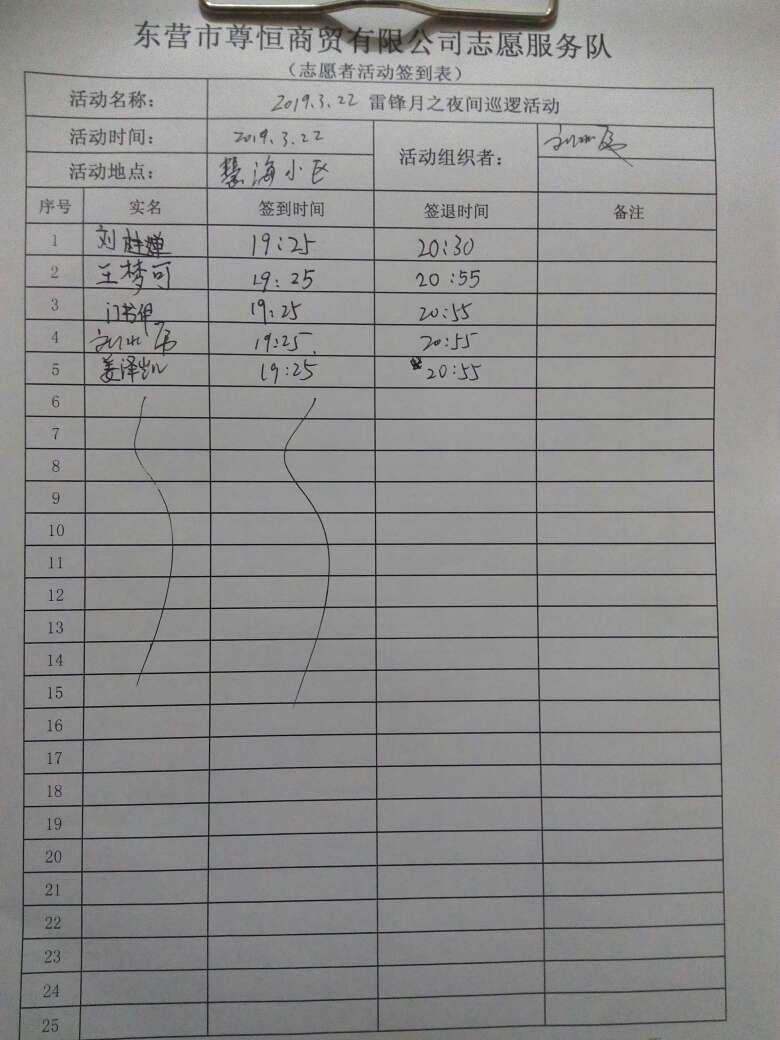 东营市尊恒商贸有限公司志愿服务队
（志愿者活动签到表）
活动名称： 2019.3.22 雷锋月之夜间巡逻活动
活动时间： 2019.3.22 活动组织者：
活动地点： 慧海小区
序号 实名 签到时间 签退时间 备注
1 刘 19:25 20:30
2 王梦可 19:25 20:55
3 19:25 20:55
4 19:25 20:55
5 姜泽凯 19:25 20:55
6
7
8
9
10
11
12
13
14
15
16
17
18
19
20
21
22
23
24
25